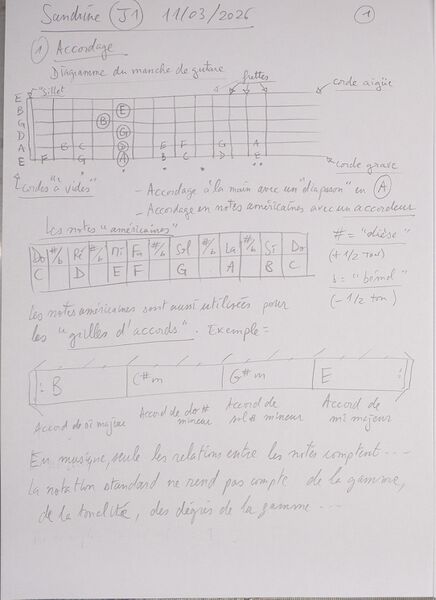 Sandrine J1 11/03/2026 1
1 Accordage
Diagramme du manche de guitare
frettes
"sillet"
corde aigüe
E
B
G
D
A
E
E
B
G
D
A
E C
F G
E F
B C
G A
D E
corde grave
"cordes à vides"
- Accordage à la main avec un "diapason" en A
- Accordage en notes américaines avec un accordeur
Les notes "américaines"
Do #/b Ré #/b Mi Fa #/b Sol #/b La #/b Si Do
C D E F G A B C
# = "dièse"
(+ 1/2 ton)
b = "bémol"
(- 1/2 ton)
Les notes américaines sont aussi utilisées pour
les "grilles d'accords". Exemple =
B C#m G#m E
Accord de si majeur
Accord de do# mineur
Accord de sol# mineur
Accord de mi majeur
En musique, seule les relations entre les notes comptent ...
La notation standard ne rend pas compte de la gamme,
de la tonalité, des dégrés de la gamme ...